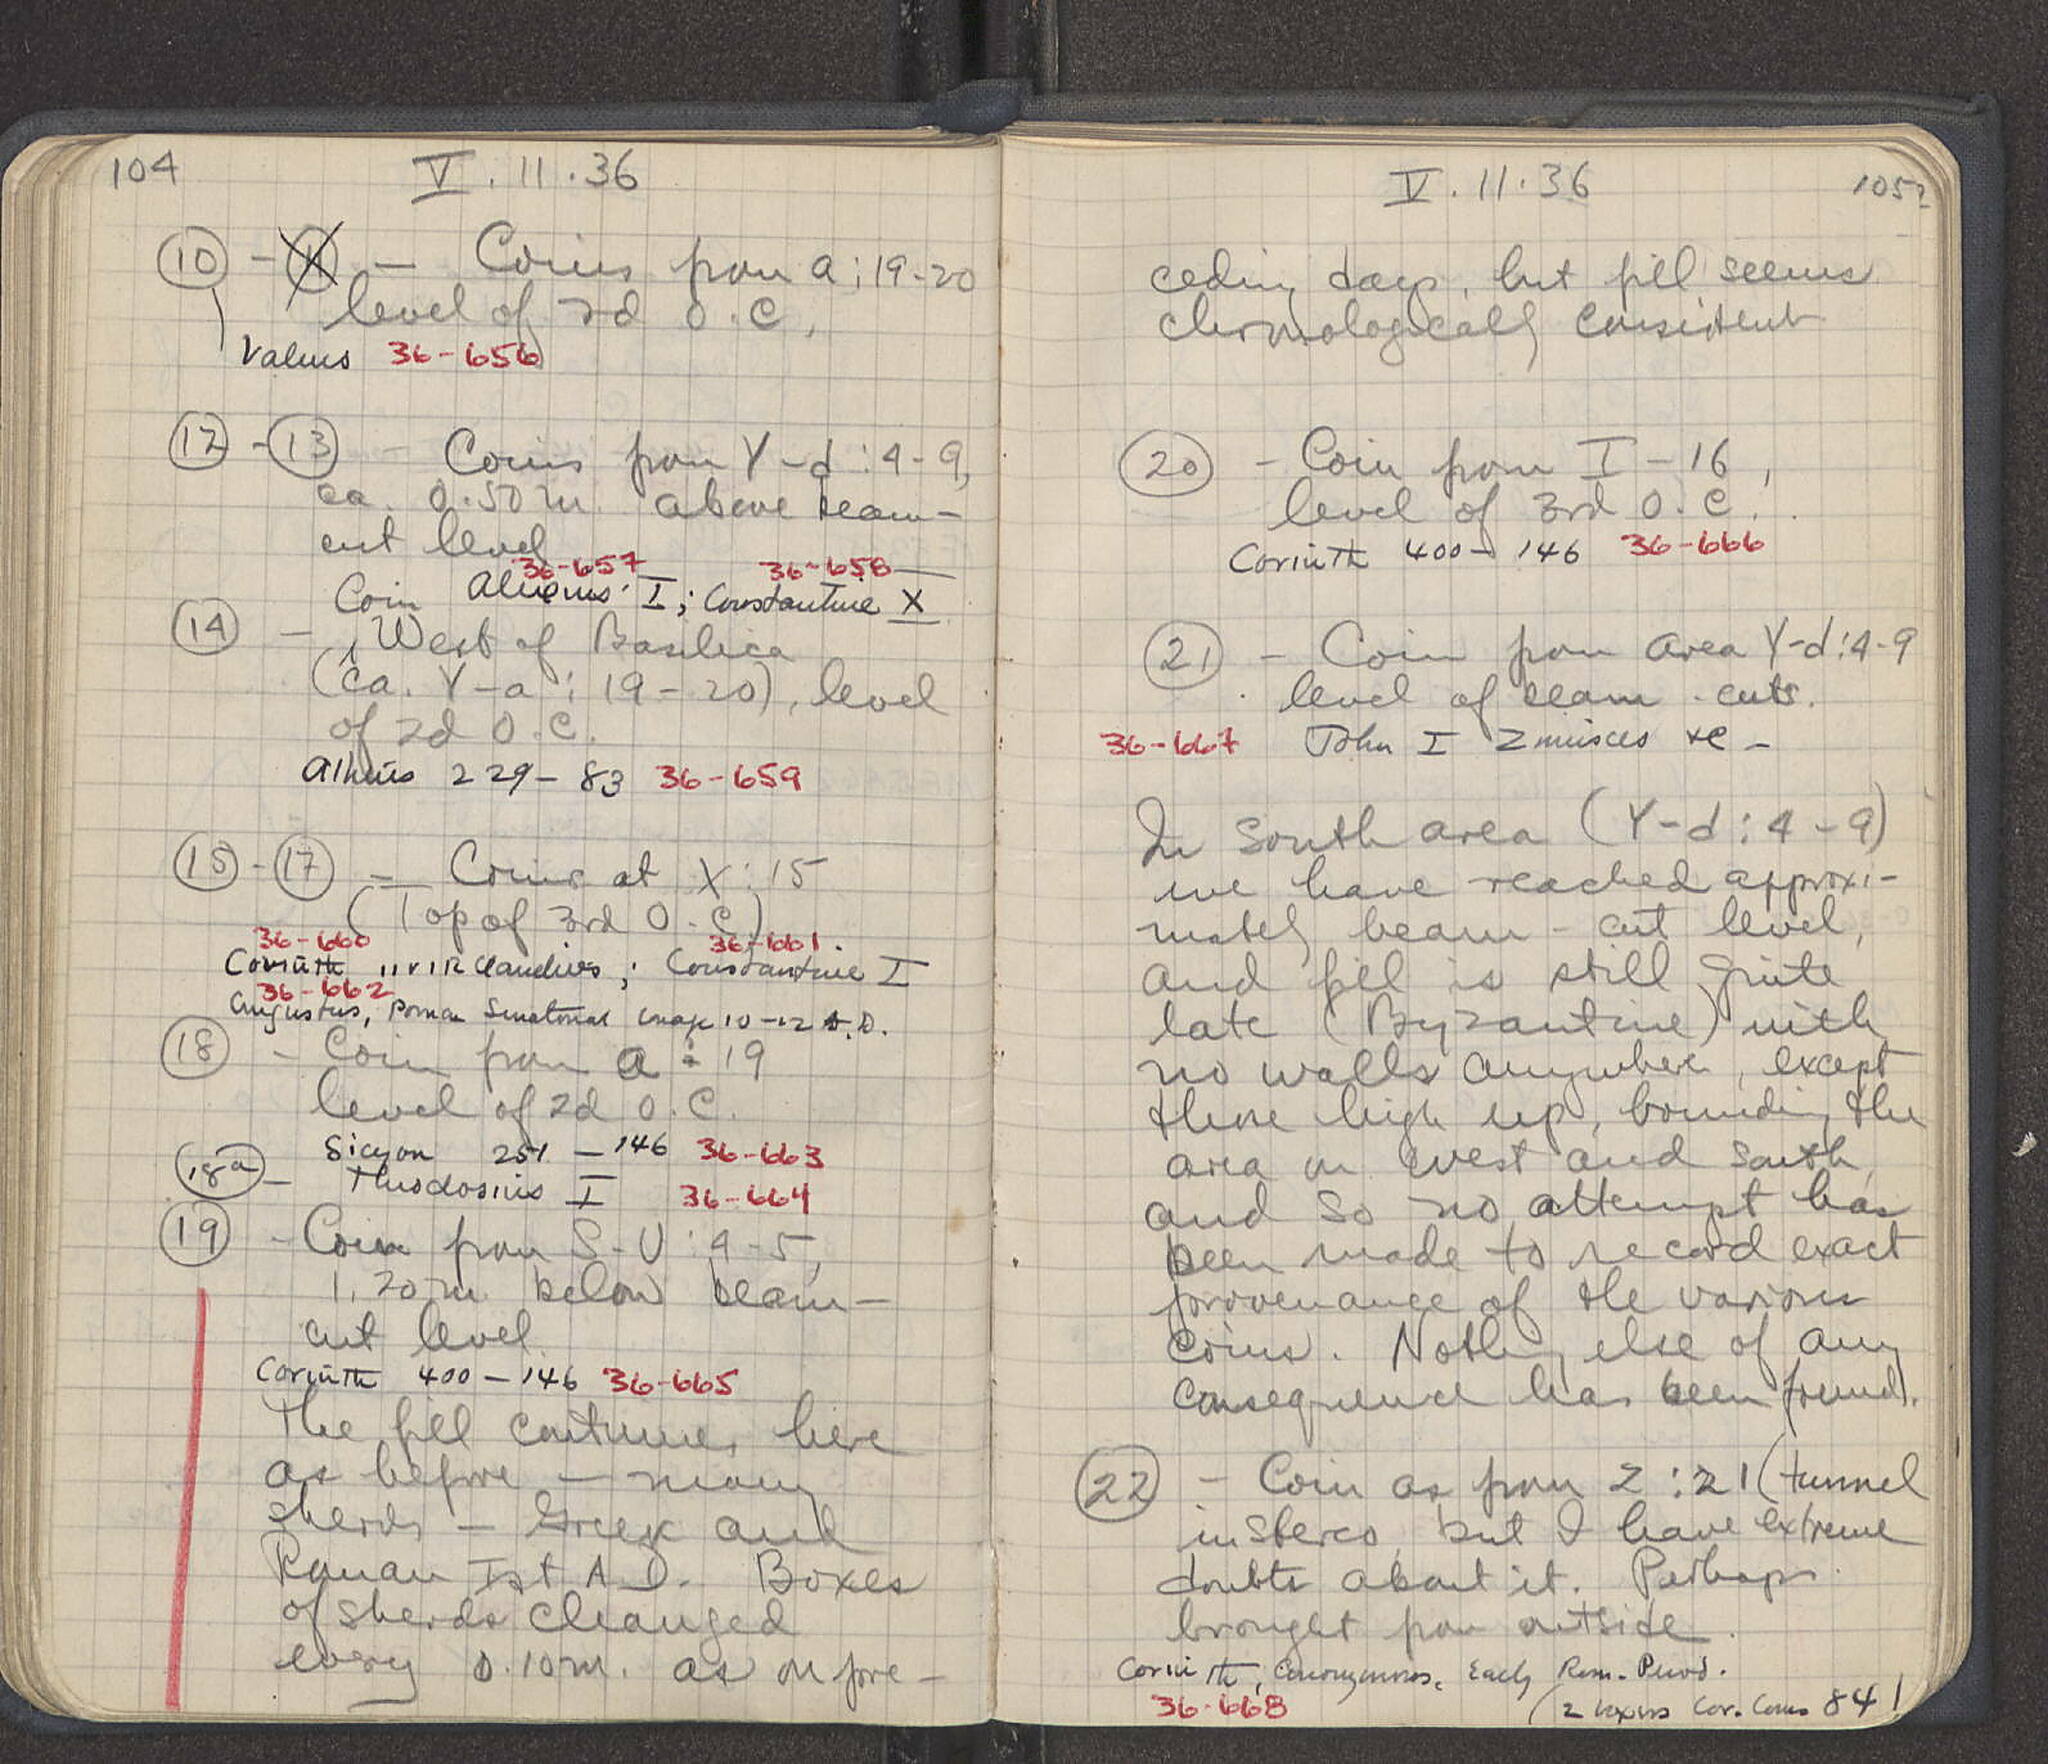 104
V. 11. 36
10 - 11 — Coins from a:19-20
level of 2d O.C.
Valens 36-656
12 - 13 — Coins from Y-d:4-9,
ca. 0.50 m. above beam-
cut level
36-657 36-658
Alexius I; Constantine X
14 — Coin West of Basilica
(ca. Y-a: 19-20), level
of 2d O.C.
Athens 229-83 36-659
15 - 17 — Coins at X:15
(Top of 3rd O.C.)
36-660 36-661
Corinth IIVIR Claudius; Constantine I
36-662
Augustus, Roman Senatorial 10-12 A.D.
18 — Coin from a:19
level of 2d O.C.
Sicyon 251-146 36-663
18a — Theodosius I 36-664
19 - Coin from S-U:4-5,
1.20 m. below beam-
cut level.
Corinth 400-146 36-665
The fill continues here
as before — many
sherds — Greek and
Roman Ist A.D. Boxes
of sherds changed
every 0.10 m. as on pre-
V. 11. 36
105
ceding days, but fill seems
chronologically consistent
20 - Coin from I-16,
level of 3rd O.C.
Corinth 400-146 36-666
21 - Coin from area Y-d:4-9
level of beam-cuts.
36-667 John I Zmisces
In South area (Y-d:4-9)
we have reached approxi-
mately beam-cut level,
and fill is still quite
late (Byzantine) with
no walls anywhere, except
those high up, bounding the
area on west and south,
and so no attempt has
been made to record exact
provenance of the various
coins. Nothing else of any
consequence has been found.
22 - Coin as from Z:21 (tunnel
in stereo, but I have extreme
doubts about it. Perhaps
brought from outside.
Corinth, Anonymous, Early Rom. Period.
36-668 (2 Cor. Coins 84)